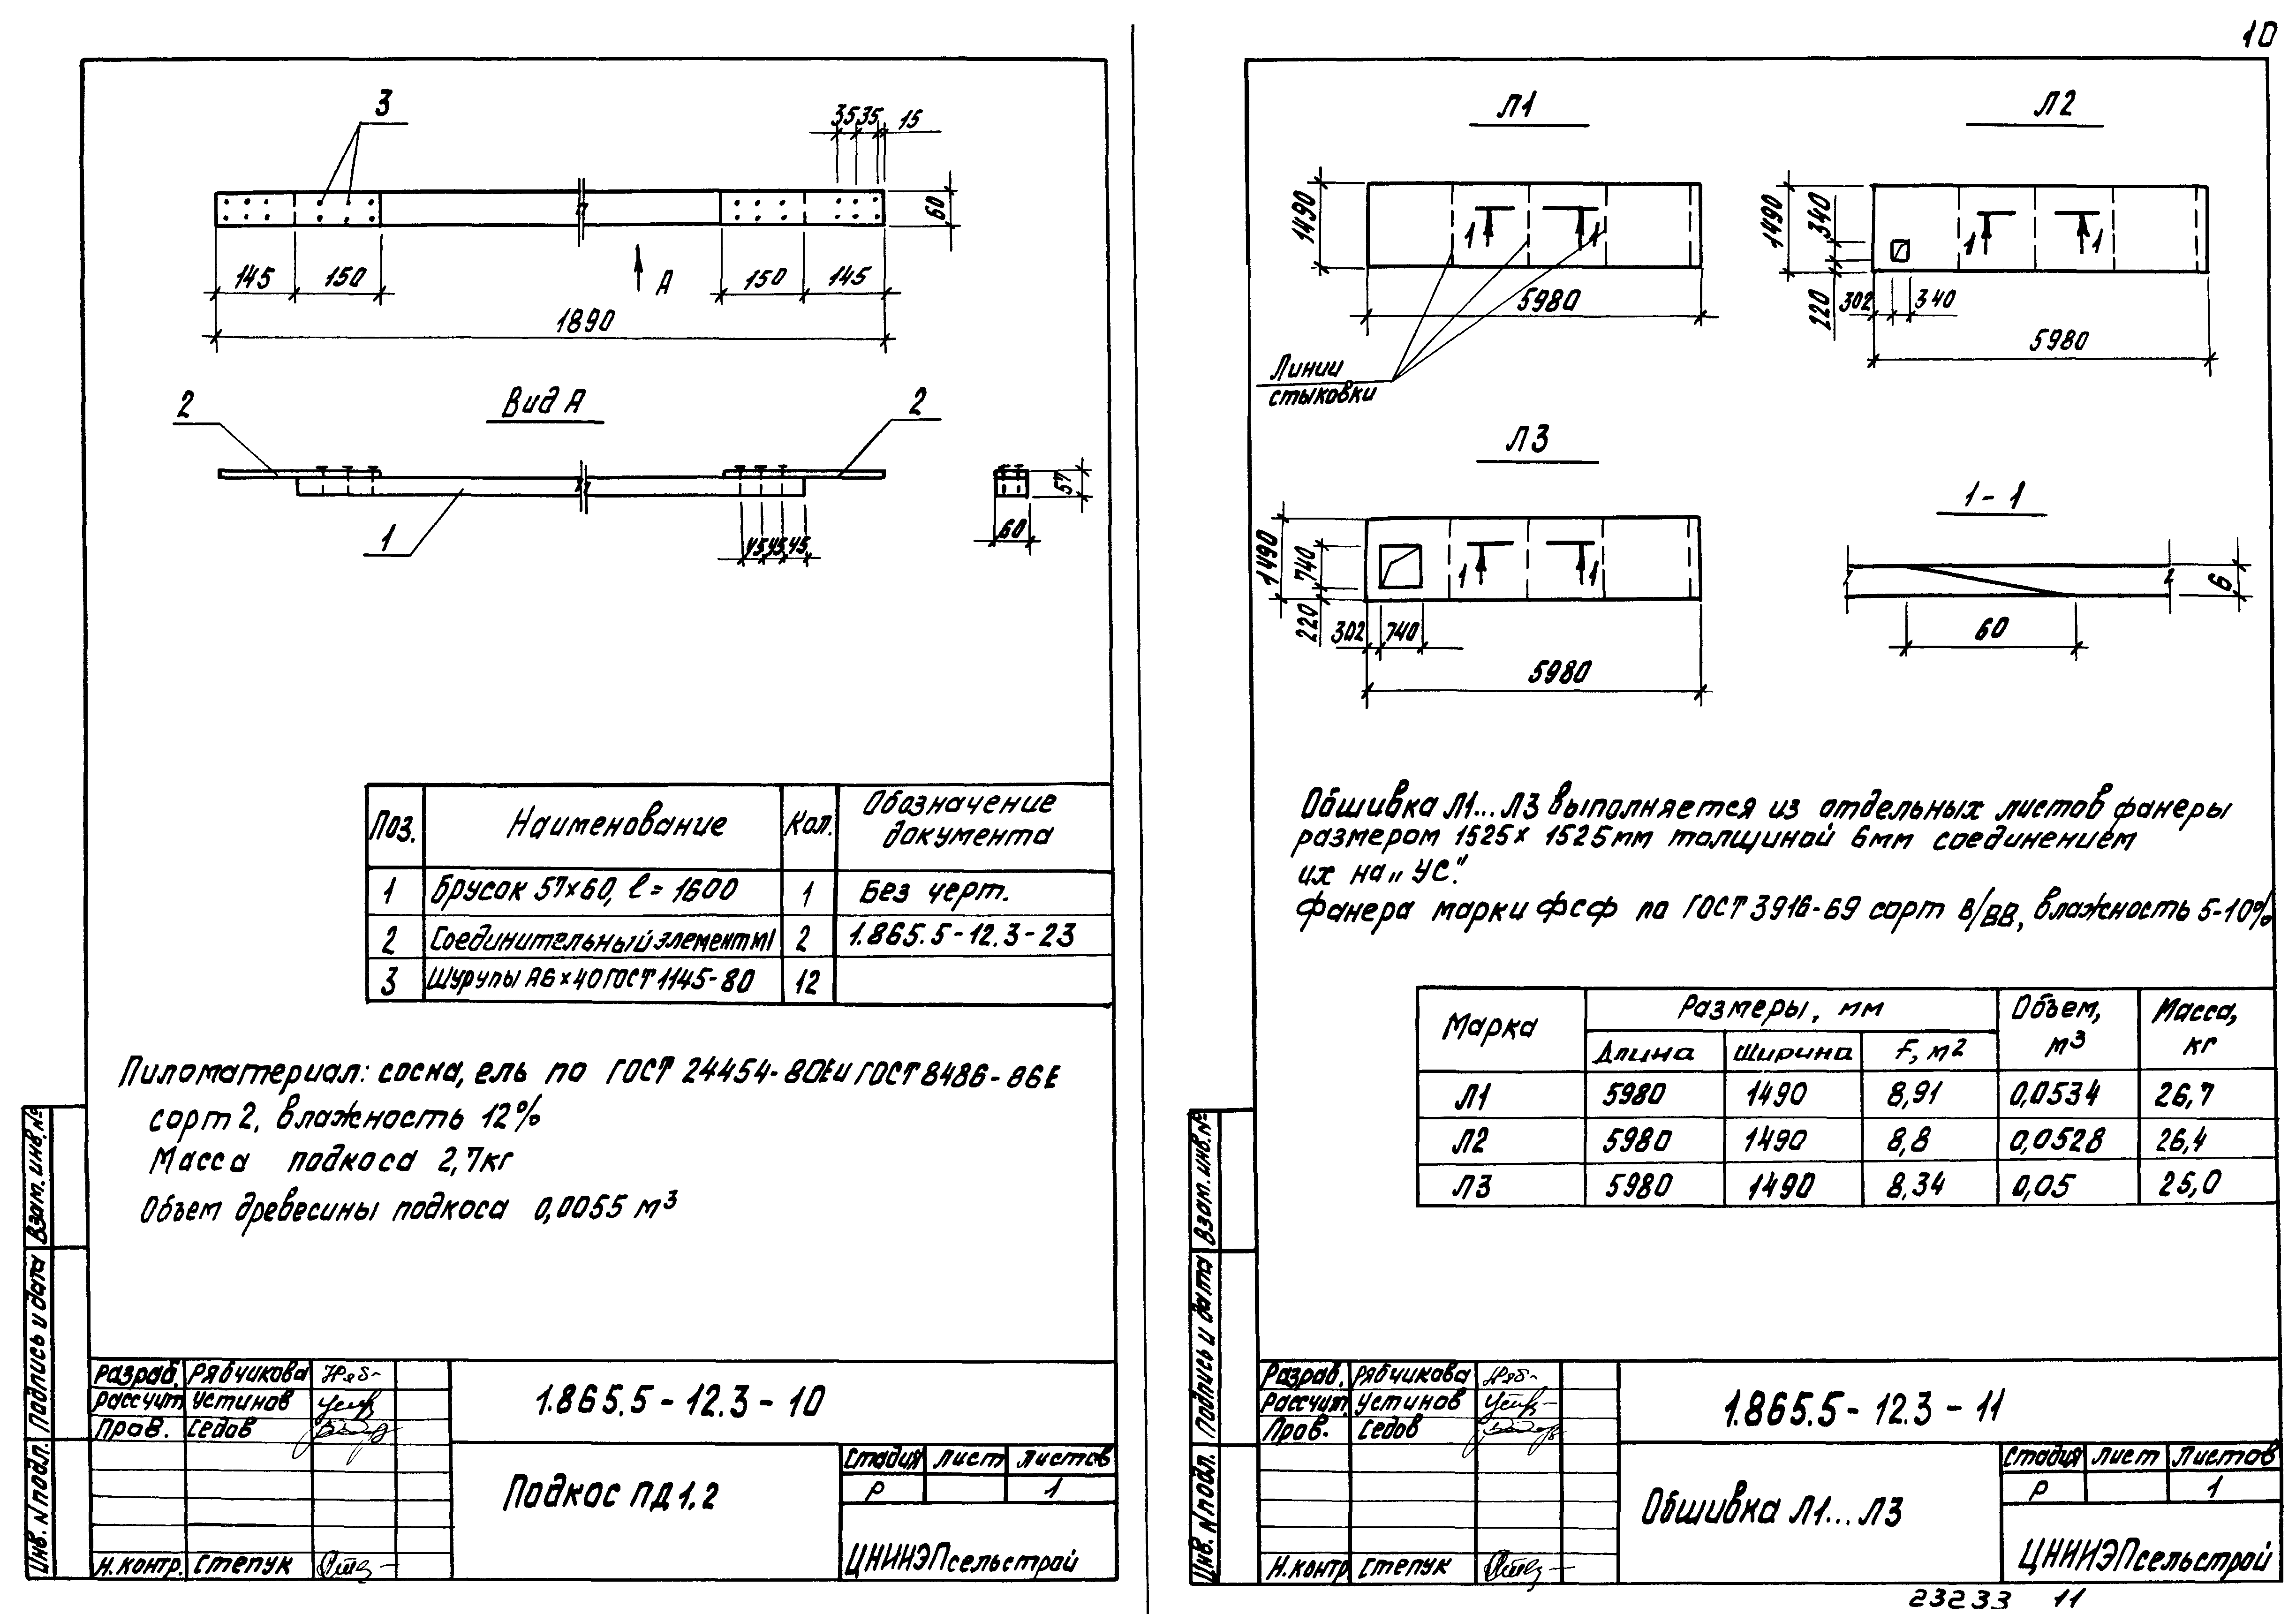 10
3
35 35 15
60
145 150 А 150 145
1890
Вид А
2 2
1
45 45 45
57
60
Поз. Наименование Кол. Обозначение документа
1 Брусок 57×60, ℓ = 1600 1 Без черт.
2 Соединительный элемент М1 2 1.865.5-12.3-23
3 Шурупы А6×40 ГОСТ 1145-80 12
Пиломатериал: сосна, ель по ГОСТ 24454-80Е и ГОСТ 8486-86Е
сорт 2, влажность 12%
Масса подкоса 2,7кг
Объем древесины подкоса 0,0055 м³
Взам. инв. №
Подпись и дата
Инв. N подл.
Разраб. Рябчикова
Рассчит. Устинов
Пров. Седов
Н.контр. Степук
1.865.5-12.3-10
Подкос ПД1.2
Стадия Лист Листов
Р 1
ЦНИИЭПсельстрой
Л1
1490
1 1
5980
Линии
стыковки
Л2
1490
340
220
1 1
302 340
5980
Л3
1490
740
220
1 1
302 740
5980
1-1
6
60
Обшивка Л1...Л3 выполняется из отдельных листов фанеры
размером 1525× 1525мм толщиной 6мм соединением
их на „УС".
Фанера марки ФСФ по ГОСТ 3916-69 сорт В/ВВ, влажность 5-10%
Марка Размеры, мм Объем, м³ Масса, кг
Длина Ширина F, м²
Л1 5980 1490 8,91 0,0534 26,7
Л2 5980 1490 8,8 0,0528 26,4
Л3 5980 1490 8,34 0,05 25,0
Взам. инв. №
Подпись и дата
Инв. N подл.
Разраб. Рябчикова
Рассчит. Устинов
Пров. Седов
Н.контр. Степук
1.865.5-12.3-11
Обшивка Л1...Л3
Стадия Лист Листов
Р 1
ЦНИИЭПсельстрой
23233 11